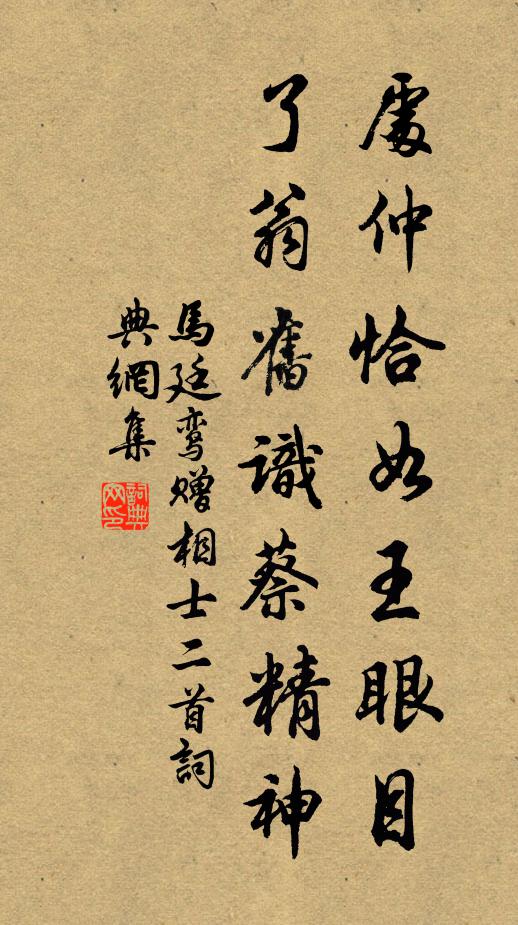 處仲恰如王眼目
了翁舊識蔡精神
馬廷鸞贈相士二首詞
典網集
詞典网印